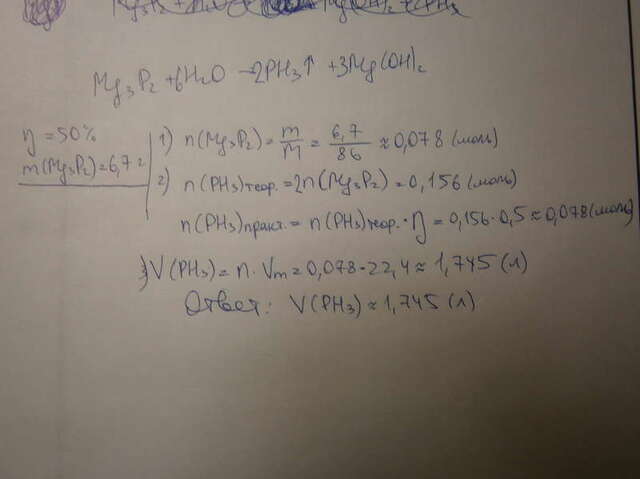 Mg₃P₂ + 6H₂O → 2PH₃↑ + 3Mg(OH)₂
η = 50%
m(Mg₃P₂) = 6,7 г
1) n(Mg₃P₂) = m/M = 6,7/86 ≈ 0,078 (моль)
2) n(PH₃)теор. = 2n(Mg₃P₂) = 0,156 (моль)
n(PH₃)практ. = n(PH₃)теор. · η = 0,156 · 0,5 ≈ 0,078 (моль)
3) V(PH₃) = n · Vm = 0,078 · 22,4 ≈ 1,745 (л)
Ответ: V(PH₃) ≈ 1,745 (л)